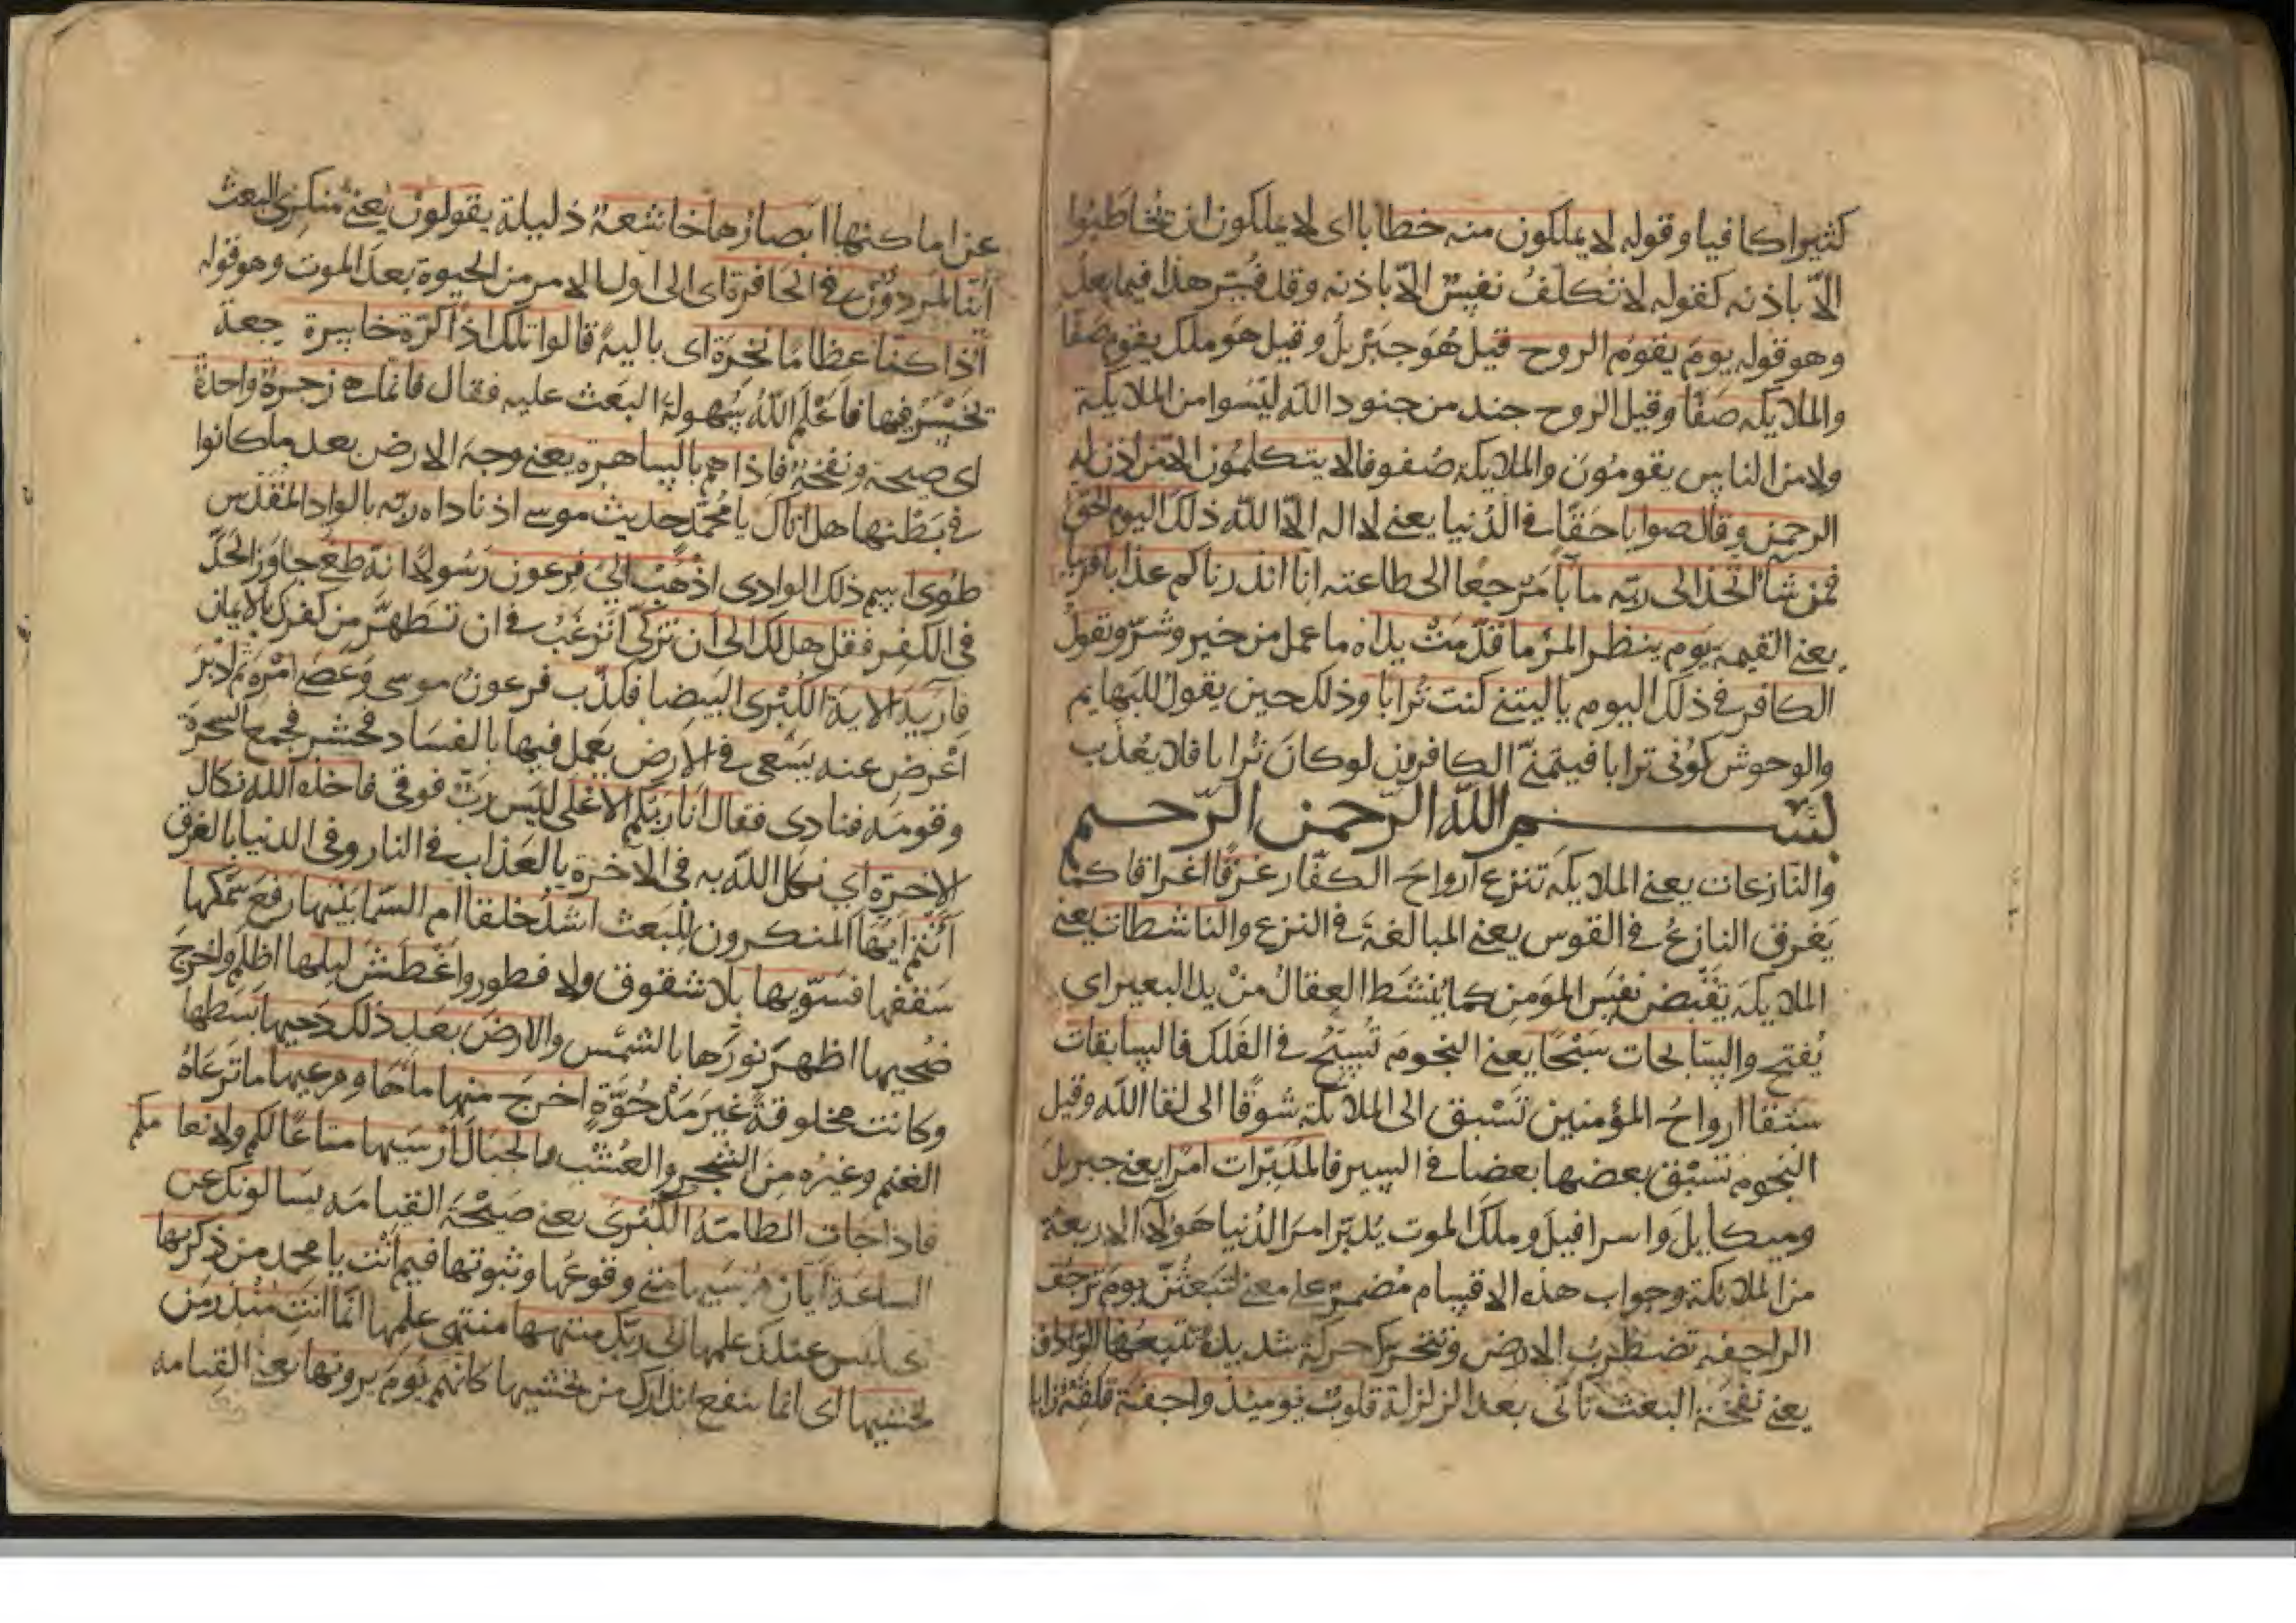 كثيرا كافيا وقوله لا يملكون منه خطابا اى لا يملكون ان تخاطبوا
الّا باذنه كقوله لا تُكلّفُ نفسٌ الّا باذنه وقد فُسِّر هذا فيما بعد
وهو قوله يومَ يقومُ الروح قيل هُوَ جبْريل وقيل هو ملك يقوم صفّا
والملايكه صَفّا وقيل الروح جند من جنود الله ليْسوا من الملايكة
ولا من الناس يقومُونَ والملايكة صُفوفا لا يتكلمُون الا من اذن له
الرحمن وقال صوابا حَقّا فى الدُنيا يعنى لا اله الّا الله ذلك اليوم الحق
فمن شا اتخذ الى ربّه مابا مَرجعًا الى طاعته انا انذرناكم عذابا قريبا
يعنى القيمة يوم ينظر المرُ ما قدّمَتْ يداه ما عمل من خير وشرّ ويقولُ
الكافر فى ذلك اليوم يا ليتنى كنت تُرابا وذلك حين يقولُ للبهايم
والوحوش كُونى ترابا فيتمنّى الكافر ان لو كانَ تُرابا فلا يُعذَب
بسم الله الرّحمن الرّحيم
والنّازعات يعنى الملايكَة تنزع اَرواحَ الكفّار غَرقًا اغراقا كما
يَغرق النازعُ فى القوس يعنى المبالغةَ فى النزع والناشطات يعنى
الملايكة تقْبض نفسَ المومن كما يُنشَط العِقالُ منْ يد البعير اى
يُفتح والسّابحات سَبْحًا يعنى النجومَ تَسبَحُ فى الفَلك فالسابقات
سَبقا ارواحُ المؤمنين تَسْبق الى الملايكة شوقا الى لقا الله وقيل
النجومُ تسْبق بعضها بعضا فى السير فالمدبّرات امرًا يعنى جبريلَ
وميكايلَ واسرافيلَ وملكَ الموت يُدبّر امرَ الدُنيا هَولا الاربعة
من الملايكة وجواب هذه الاقسام مُضمرٌ على معنى لتبعثُنّ يومَ ترجُف
الراجفه تضطرب الارض وتتحرك حركة شديدة تتبعُها الرّادفة
يعنى نفْخَة البعث تاتى بعد الزلزلة قلوبٌ يوميذ واجفة قلقة زايلة
عن اماكنها ابصارُها خاشعةٌ ذليلة يقولونَ يعنى منكرى البعث
أئنا لمردودُون فى الحافرة اى الى اول الامر من الحيوة بعد الموت وهو قوله
أئذا كنّا عظامًا نخرة اى باليةً قالوا تلك اذا كرّة خاسرة رجعة
نخْسَر فيها فاعْلَم اللهُ بسُهولة البَعث عليه فقال فانما هى زجرةٌ واحدة
اى صيحة ونفخةٌ فاذا هم بالساهرة يعنى وجهَ الارض بعد ما كانوا
فى بَطْنها هل اتاكَ يا مُحمّد حديث موسى اذ ناداه ربّه بالواد المقدّس
طُوى اسم ذلك الوادى اذْهَبْ الى فرعون رَسُولا انّه طغى جاوَز الحدَّ
فى الكفر فقل هل لك الى اَن تزكّى اتَرْغَبُ فى ان تتطهَّر من كفرك بالايمان
فاَريهُ الاية الكُبْرى البَيضا فكذّب فرعونُ موسى وعَصى امْرهُ ثم ادبَر
اعْرض عنه يسْعى فى الارض يعمل فيها بالفساد فحشر فجمع السحرَة
وقومَه فنادى فقال انا ربّكم الاعْلى ليْس رَبّ فوقى فاخذه الله نكال
الاخرة اى نكل الله به فى الاخرَة بالعَذاب فى النار وفى الدنيا بالغرق
أأنتم ايّها المنكرون للبَعث اشدُّ خلقا ام السّما بنيها رفع سَمكها
سَقفها فسَوّيها بلا شقوق ولا فطور واغْطَشَ ليلها اظلم واخرجَ
ضُحيها اظهرَ نورَها بالشمْس والارضَ بَعْد ذلك دَحيها بسَطها
وكانت مخلوقةً غيرَ مَدْحُوّةٍ اخرجَ منها ماءَها ومرعيها ما تَرعَاهُ
الغنم وغيرُه مِنَ الشجر والعُشْب والجبالَ ارسَيها متاعًا لكم ولانعامكم
فاذا جات الطامّةُ الكُبرى يعنى صَيْحَة القيامَه يسَالونك عن
الساعة اَيّان مُرسَيها متى وقوعُها وثبوتها فيم اَنْتَ يا محمد من ذكريها
اى ليس عندك علمها الى ربّك منتهيها منتهى علمها انّما انتَ مُنْذر مَن
يخشيها اى انما ينفع انذارك من يخشيها كانهم يَوم يرونها يعنى القيامه